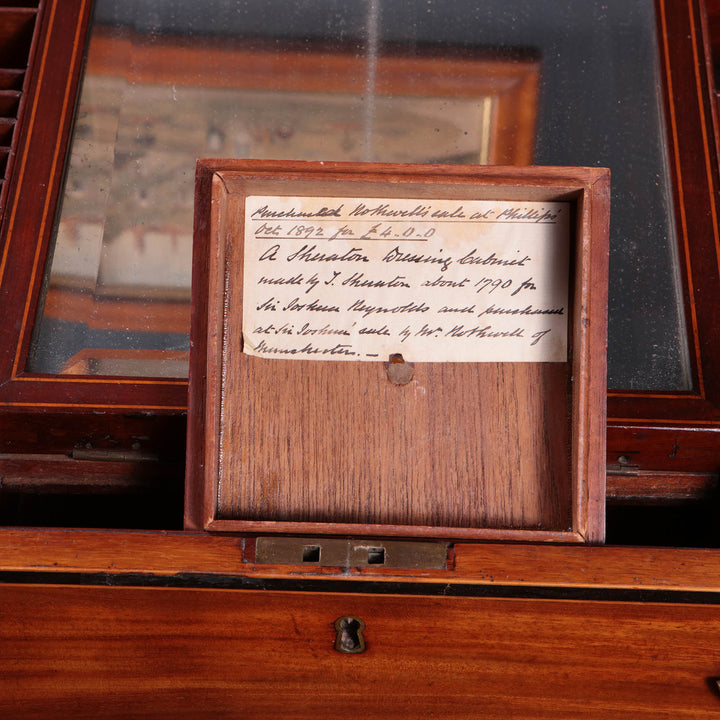 Purchased Rothwell's sale at Phillips'
Oct 1892 for £4.0.0
A Sheraton Dressing Cabinet
made by T. Sheraton about 1790 for
Sir Joshua Reynolds and purchased
at Sir Joshua' sale by Mr. Rothwell of
Manchester. —